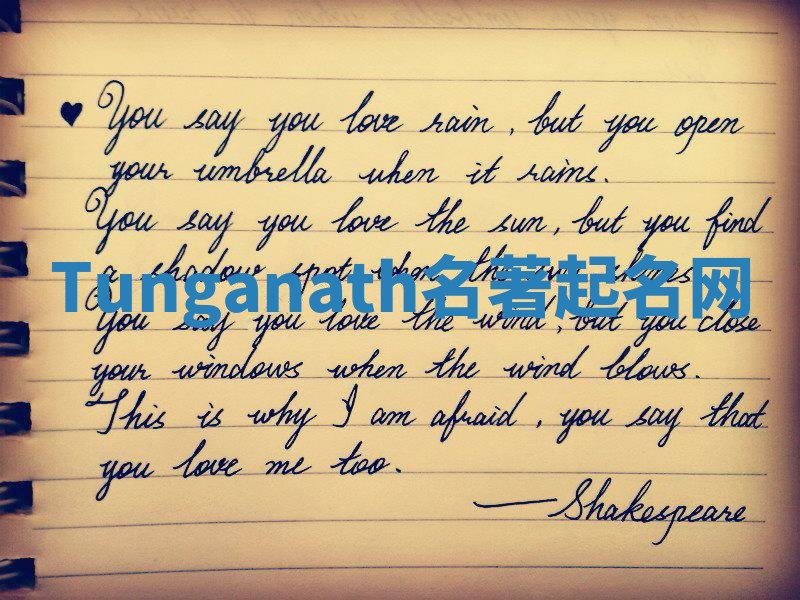 ♥ You say you love rain, but you open
your umbrella when it rains.
You say you love the sun, but you find
a shadow spot when the sun shines.
Tunganath名著起名网
You say you love the wind, but you close
your windows when the wind blows.
This is why I am afraid, you say that
you love me too.
—Shakespeare